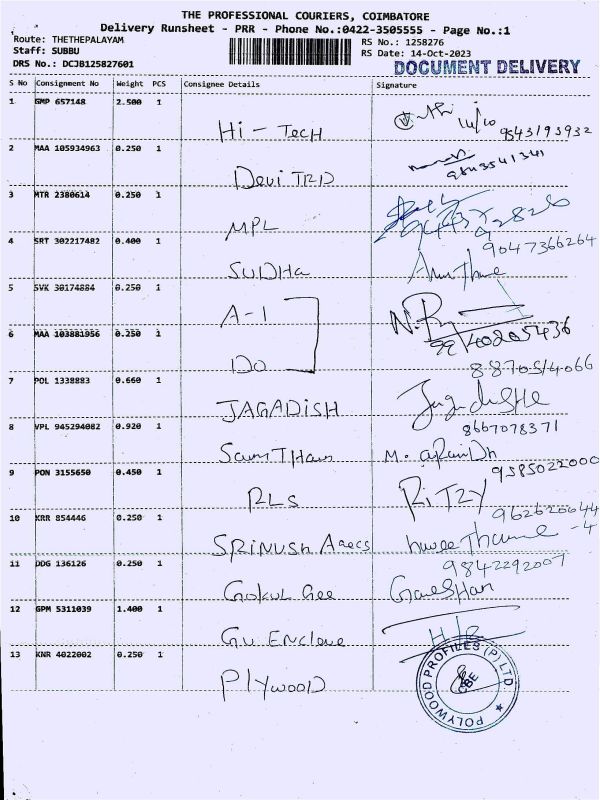 THE PROFESSIONAL COURIERS, COIMBATORE
Delivery Runsheet - PRR - Phone No.:0422-3505555 - Page No.:1
Route: THETHEPALAYAM
RS No.: 1258276
Staff: SUBBU
RS Date: 14-Oct-2023
DRS No.: DCJB125827601
DOCUMENT DELIVERY
S No Consignment No Weight PCS Consignee Details Signature
1 GMP 657148 2.500 1
Hi - Tech 14/10 9543193932
2 MAA 105934963 0.250 1
Devi TRD
3 MTR 2380614 0.250 1
MPL
4 SRT 302217482 0.400 1
SUDHa 9047366264
5 SVK 30174884 0.250 1
A-1 N.R
6 MAA 103881956 0.250 1
DO
7 POL 1338883 0.660 1
JAGADISH
8 VPL 945294082 0.920 1
8667078371
9 PON 3155650 0.450 1
9585022000
RLS RiTZY
10 KRR 854446 0.250 1
SRINUSH
11 DDG 136126 0.250 1
9842292007
GOKUL Gee
12 GPM 5311039 1.400 1
G.V Enclave
13 KNR 4022002 0.250 1
PlywooD
POLYWOOD PROFILES (P) LTD.
CBE